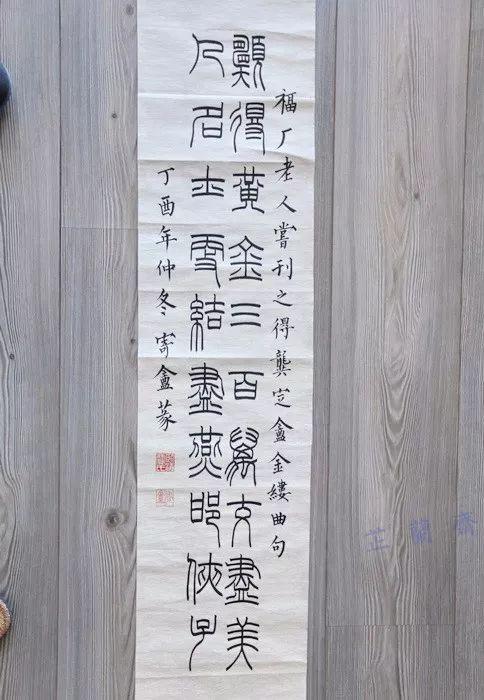 福厂老人嘗刊之得龔定盦金縷曲句
願得黃金三百萬交盡美
人名士更結盡燕邯俠子
丁酉年仲冬寄盦篆
芷蘭齋